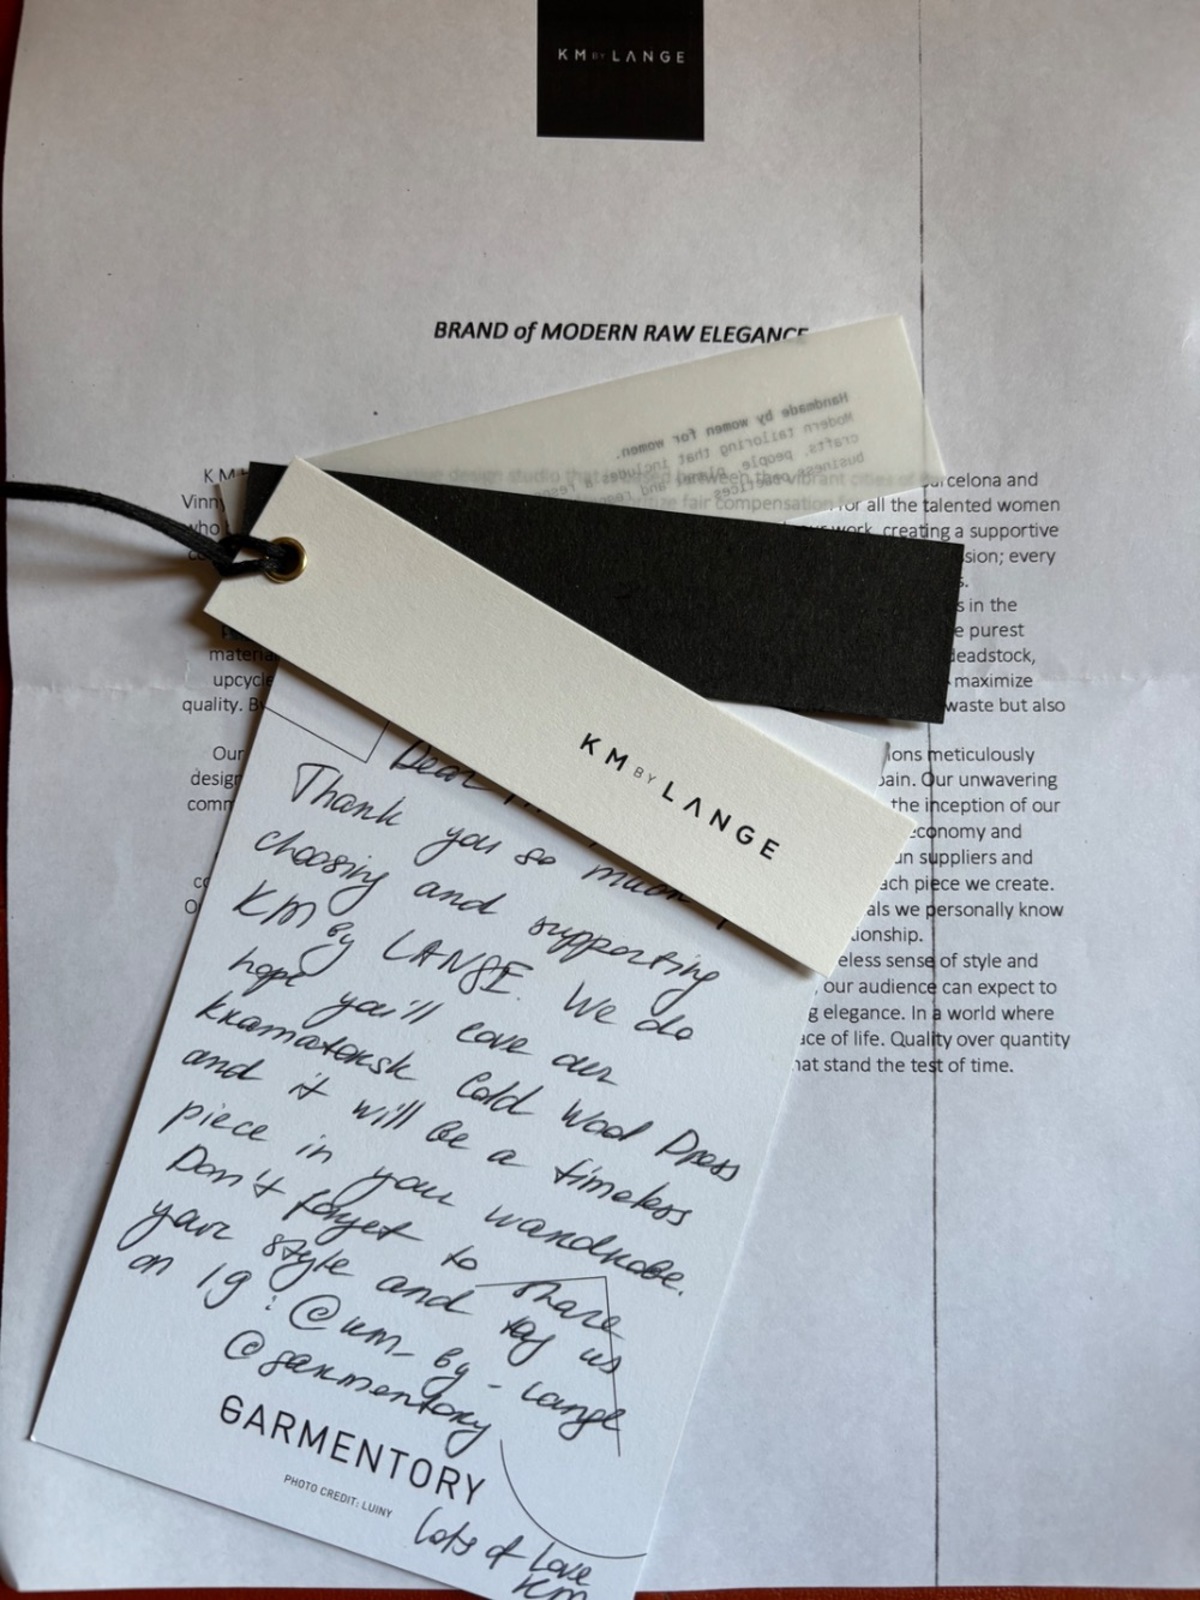 KM BY LANGE
BRAND of MODERN RAW ELEGANCE
Handmade by women for women.
Modern tailoring that includes
crafts, people, planet and
business practices
KM design studio that based between the vibrant cities of Barcelona and
Vinny fair compensation for all the talented women
who work, creating a supportive
sion; every
s.
s in the
e purest
materia deadstock,
upcycle maximize
quality. B waste but also
Our ions meticulously
design pain. Our unwavering
comm the inception of our
economy and
an suppliers and
co ach piece we create.
O als we personally know
tionship.
eless sense of style and
, our audience can expect to
g elegance. In a world where
ace of life. Quality over quantity
hat stand the test of time.
KM BY LANGE
Dear
Thank you so much
choosing and supporting
KM by LANGE. We do
hope you'll love our
Kramatorsk Cold Wool Dress
and it will be a timeless
piece in your wardrobe.
Don't forget to share
your style and tag us
on Ig: @km_by_lange
@garmentory
GARMENTORY
PHOTO CREDIT: LUINY
Lots of Love
KM